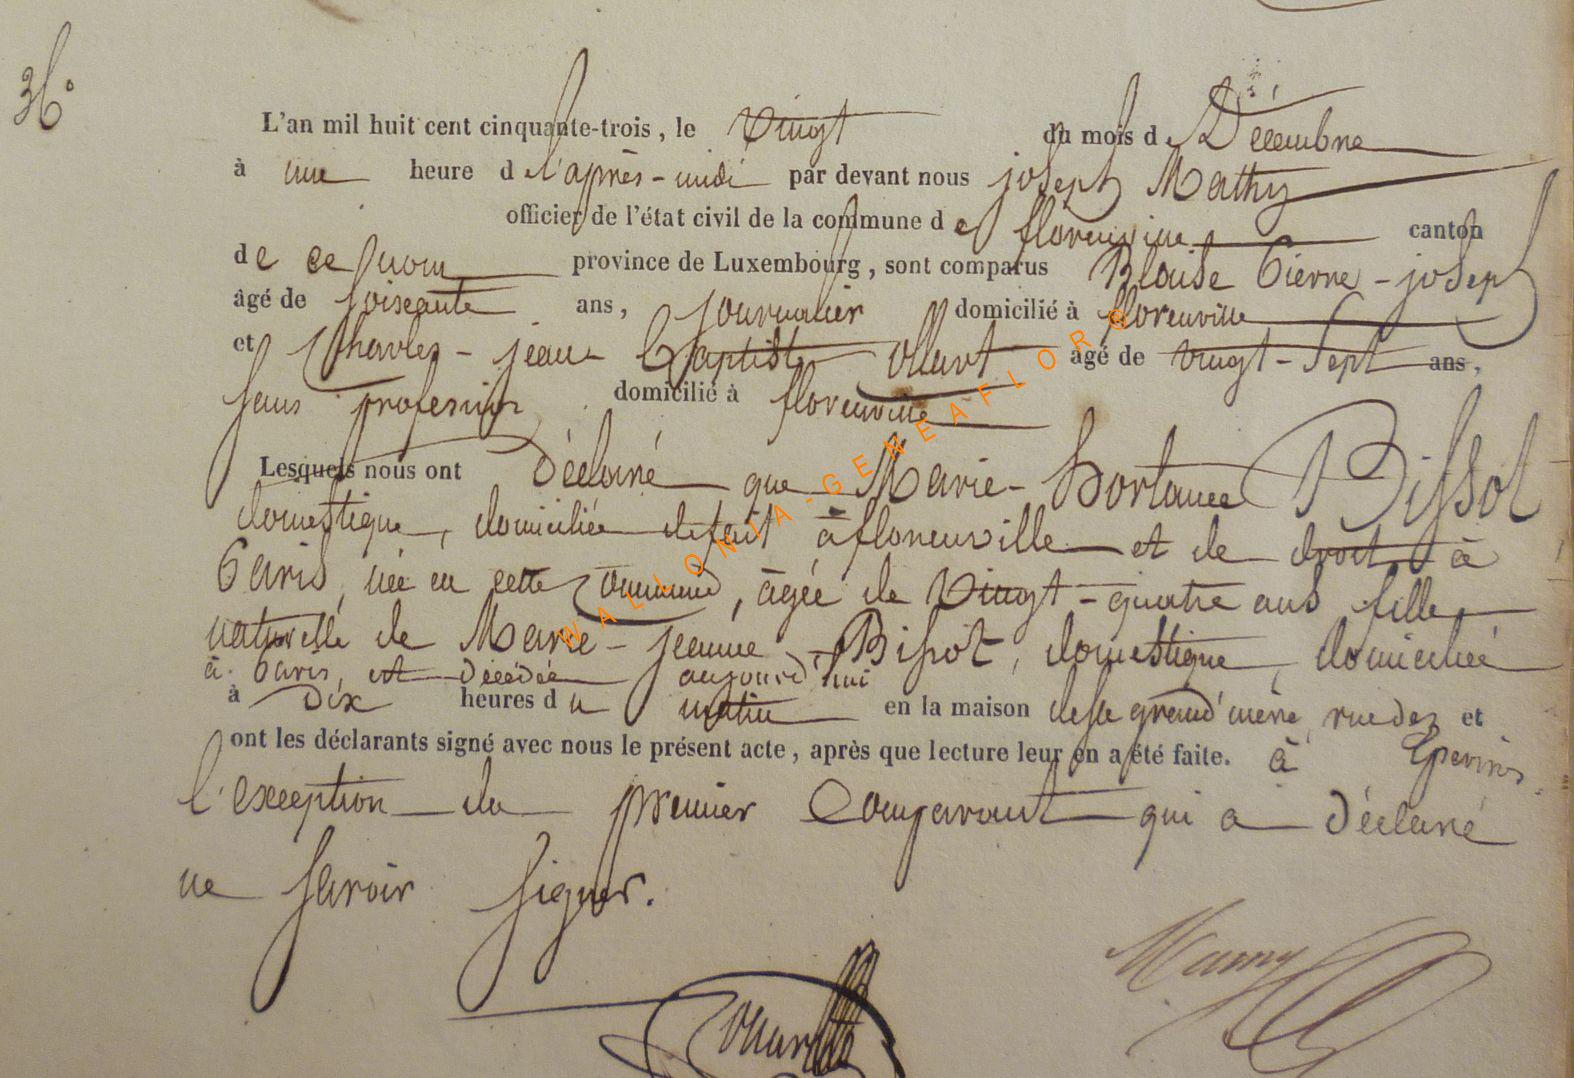 36°
L'an mil huit cent cinquante-trois, le vingt du mois de Décembre
à une heure de l'après-midi par devant nous joseph Mathy
officier de l'état civil de la commune de florenville canton
de ce nom province de Luxembourg, sont comparus Blaise Pierre-joseph
âgé de soixante ans, journalier domicilié à florenville
et Charles-jean Baptiste âgé de vingt-sept ans,
sans profession domicilié à florenville
Lesquels nous ont Déclaré que Marie-hortance Bissot
domestique, domiciliée de fait à florenville et de droit à
Paris, née en cette commune, âgée de vingt-quatre ans fille
naturelle de Marie-jeanne Bissot, domestique, domiciliée
à Paris, est décédée aujourd'hui
à Dix heures du matin en la maison de sa grand'mère, rue des et
ont les déclarants signé avec nous le présent acte, après que lecture leur en a été faite. à Epervins
l'exception du premier Comparant qui a déclaré
ne savoir signer.
WALLONIA-GENEAFLOR